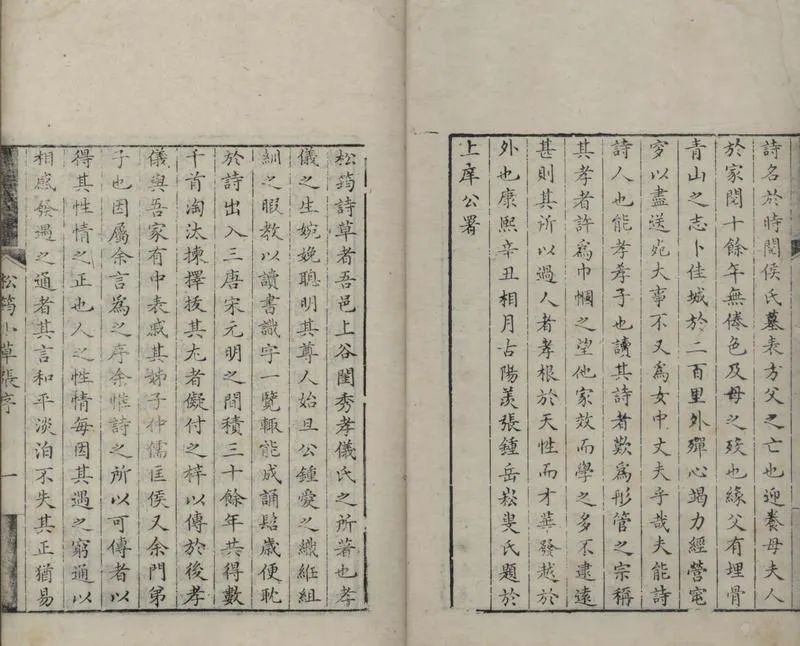 詩名於時閱侯氏墓表方父之亡也迎養母夫人
於家閱十餘年無倦色及母之歿也緣父有埋骨
青山之志卜佳城於二百里外殫心竭力經營窀
穸以盡送宛大事不又為女中丈夫乎哉夫能詩
詩人也能孝孝子也讀其詩者歎為彤管之宗稱
其孝者許為巾幗之望他家效而學之多不逮遠
甚則其所以過人者孝根於天性而才華發越於
外也康熙辛丑相月古陽羨張鍾岳崧叟氏題於
上庠公署
松筠詩草者吾邑上谷閨秀孝儀氏之所著也孝
儀之生婉娩聰明其尊人始旦公鍾愛之織紝組
紃之暇教以讀書識字一覽輒能成誦髫歲便耽
於詩出入三唐宋元明之間積三十餘年共得數
千首淘汰揀擇拔其尤者儗付之梓以傳於後孝
儀與吾家有中表戚其姊子仲儒匡侯又余門弟
子也因屬余言為之序余惟詩之所以可傳者以
得其性情之正也人之性情每因其遇之窮通以
相感發遇之通者其言和平淡泊不失其正猶易
松筠小草張序 一